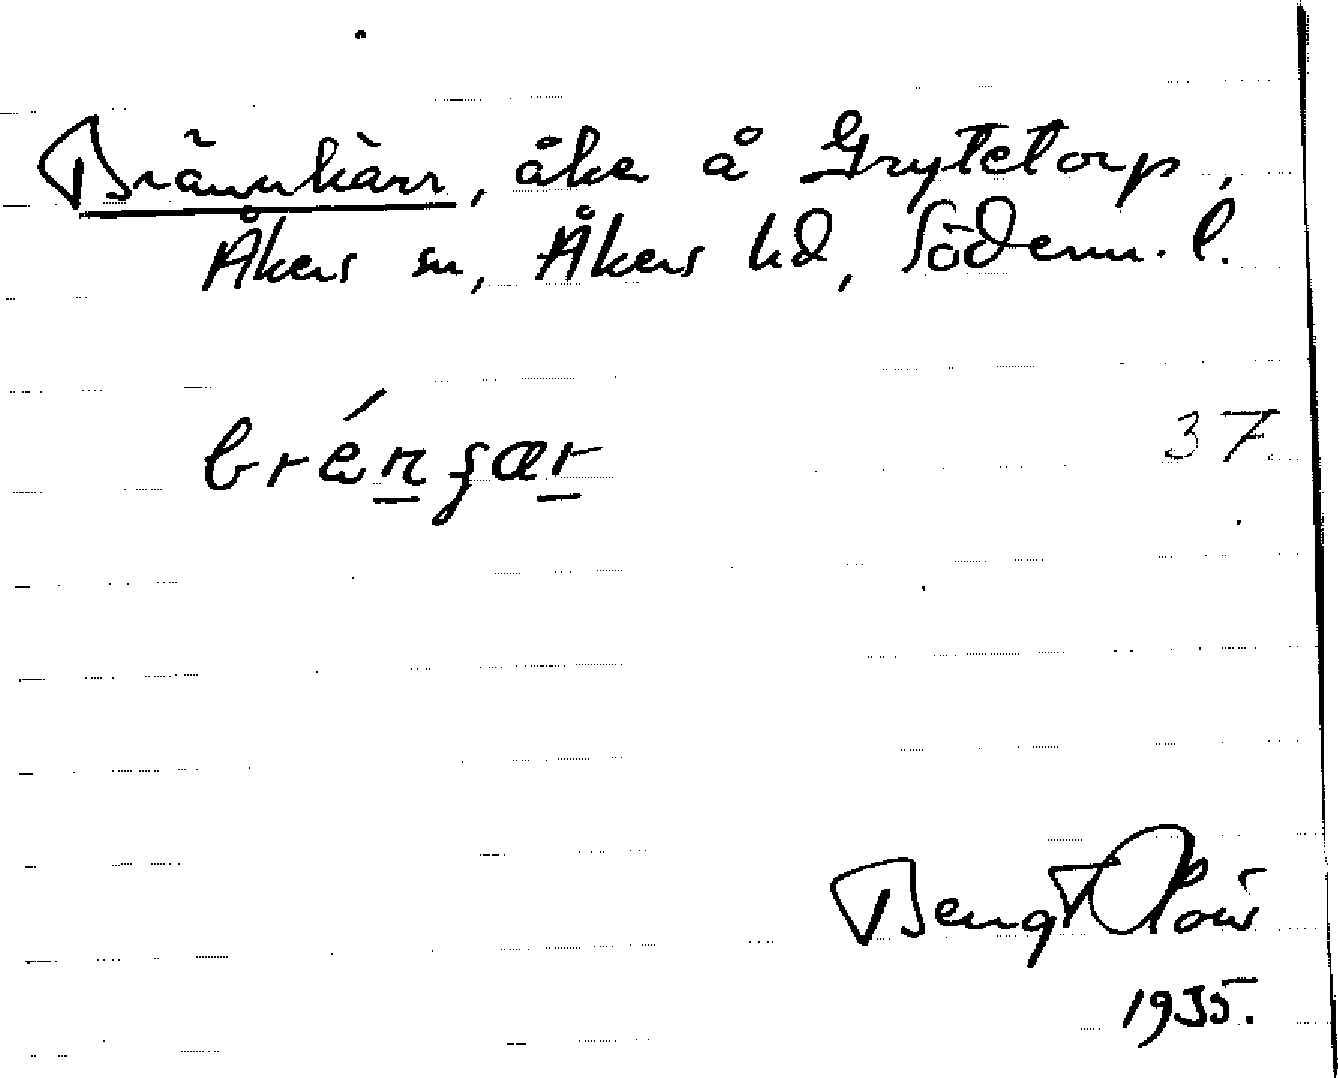 Brännkärr, åker å Grytetorp,
Åkers sn, Åkers hd, Söderm. l.
brénʂær 37.
Bengt
1935.